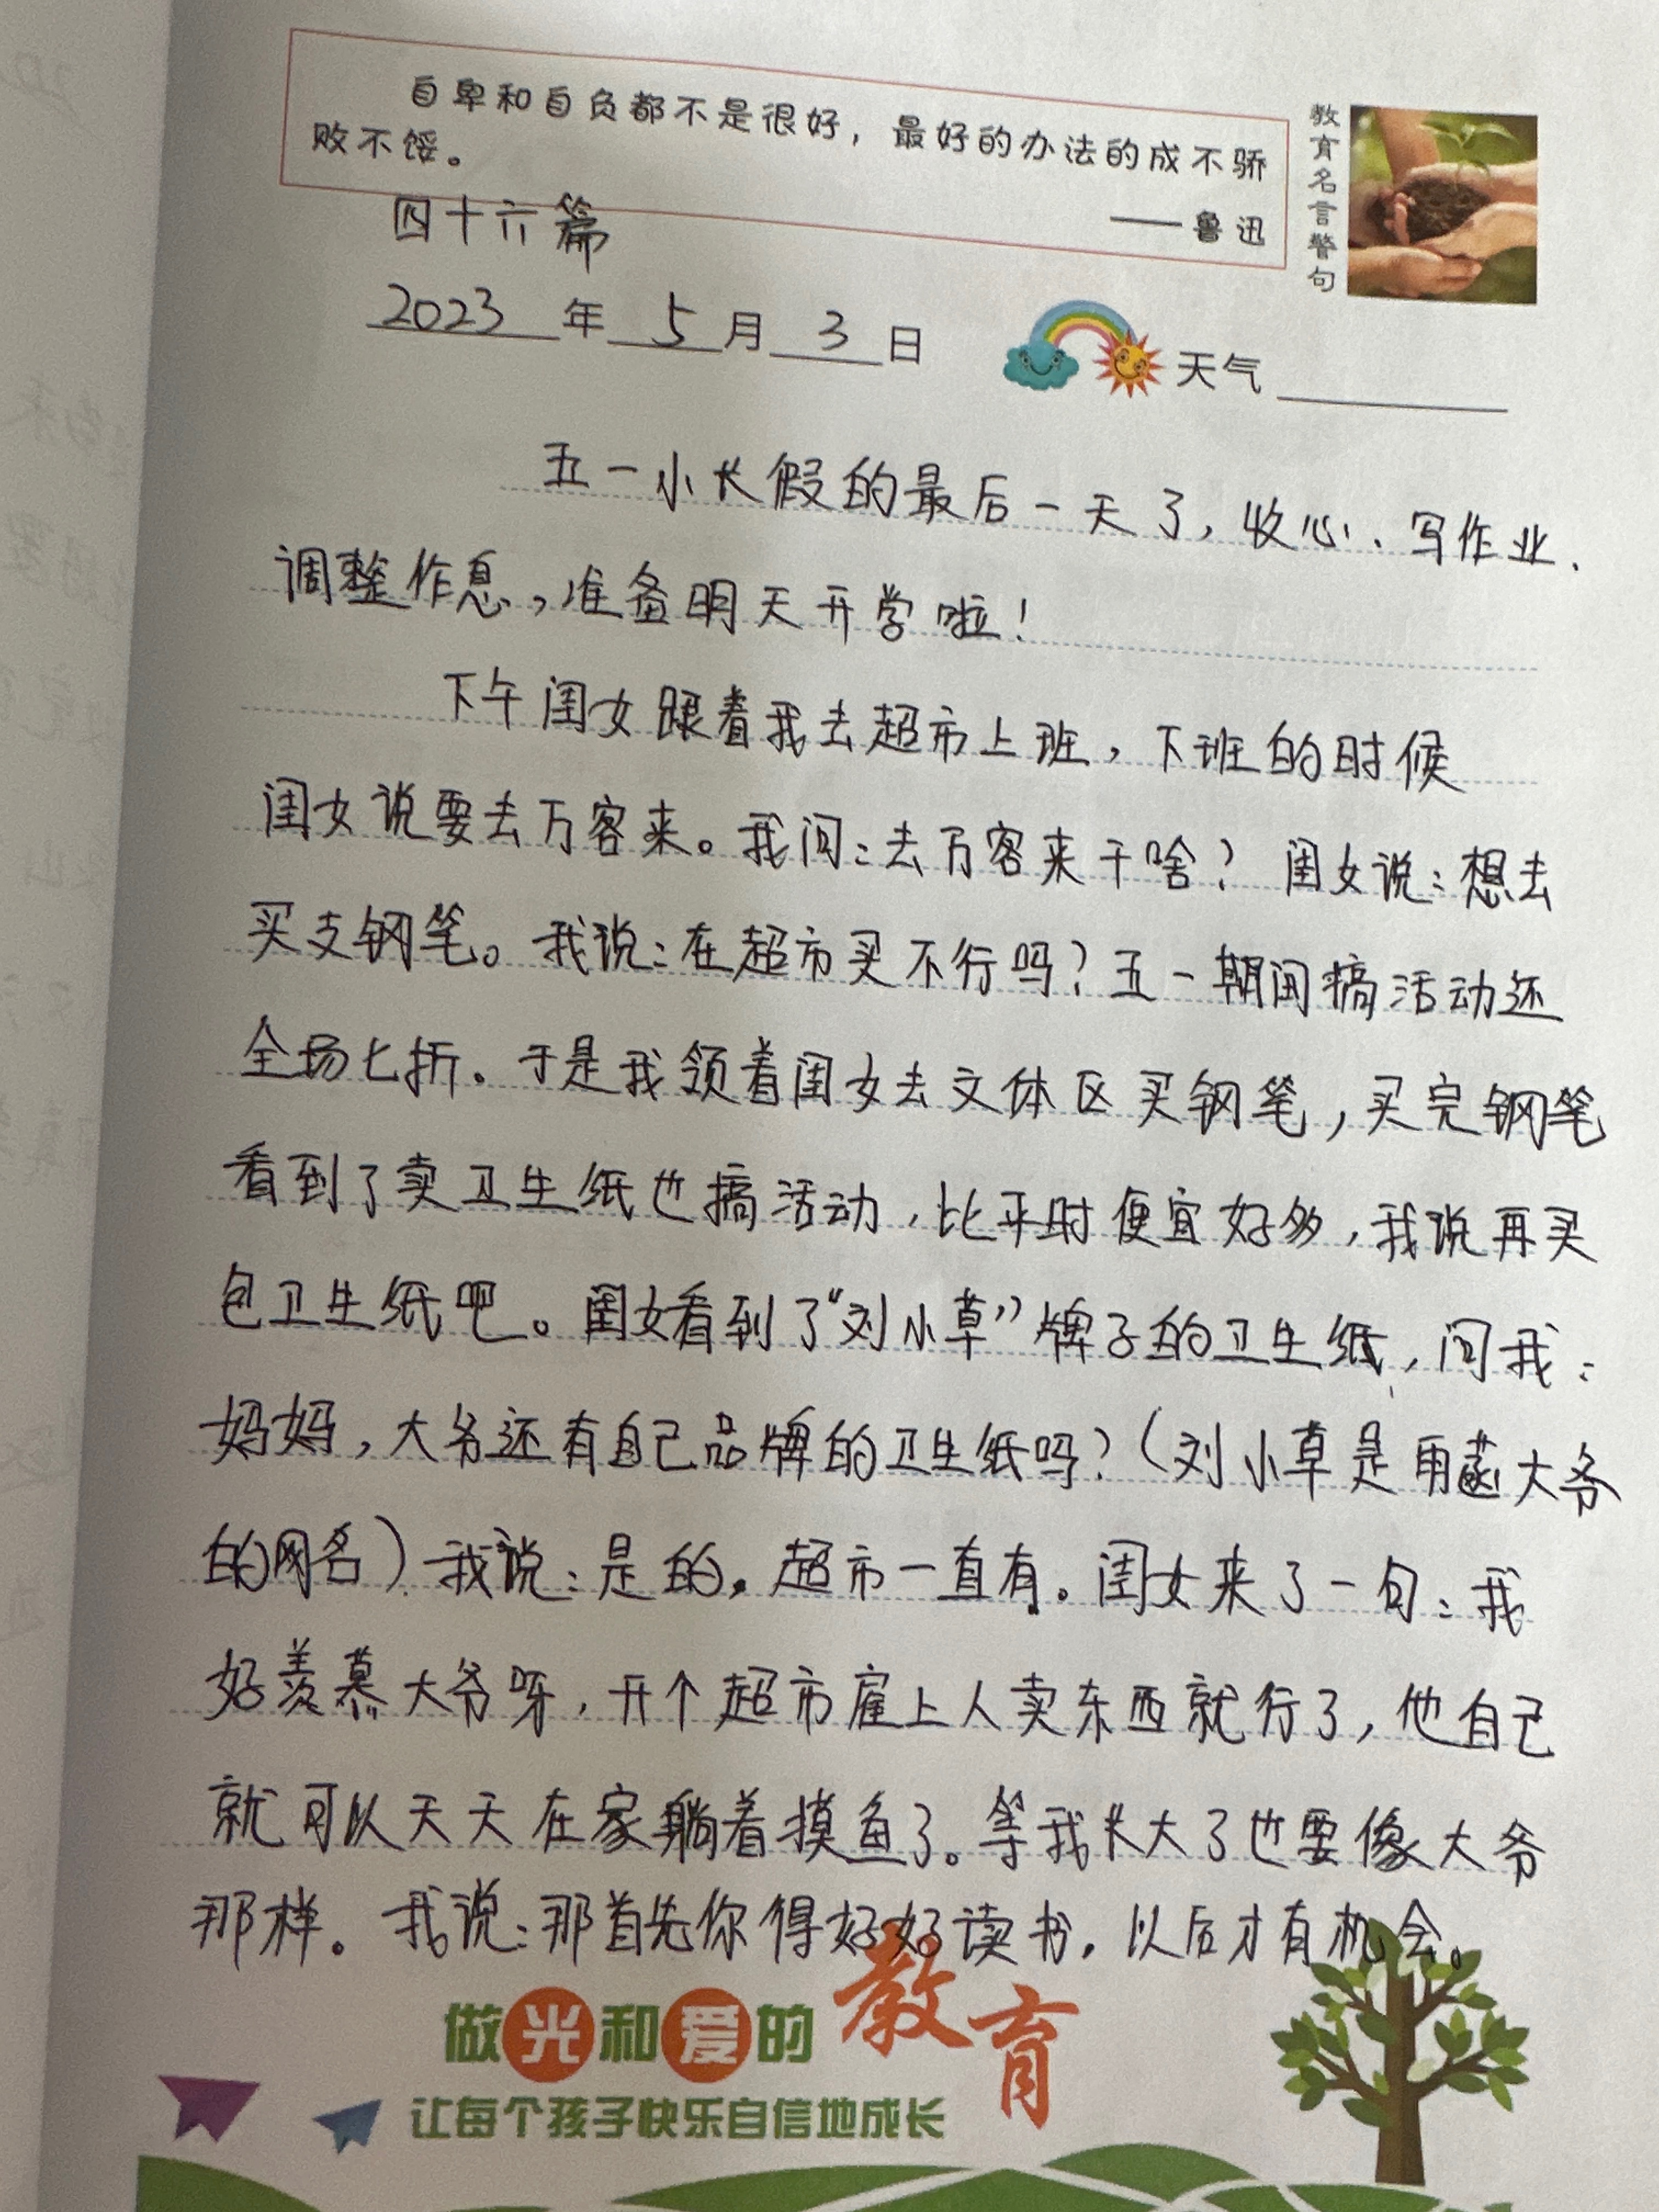 自卑和自负都不是很好，最好的办法的成不骄
败不馁。
——鲁迅
教育名言警句
四十六篇
2023年5月3日
天气
五一小长假的最后一天了，收心、写作业、
调整作息，准备明天开学啦！
下午闺女跟着我去超市上班，下班的时候
闺女说要去万客来。我问：去万客来干啥？闺女说：想去
买支钢笔。我说：在超市买不行吗？五一期间搞活动还
全场七折。于是我领着闺女去文体区买钢笔，买完钢笔
看到了卖卫生纸也搞活动，比平时便宜好多，我说再买
包卫生纸吧。闺女看到了“刘小草”牌子的卫生纸，问我：
妈妈，大爷还有自己品牌的卫生纸吗？（刘小草是雨菡大爷
的网名）我说：是的。超市一直有。闺女来了一句：我
好羡慕大爷呀，开个超市雇上人卖东西就行了，他自己
就可以天天在家躺着摸鱼了。等我长大了也要像大爷
那样。我说：那首先你得好好读书，以后才有机会。
做光和爱的教育
让每个孩子快乐自信地成长